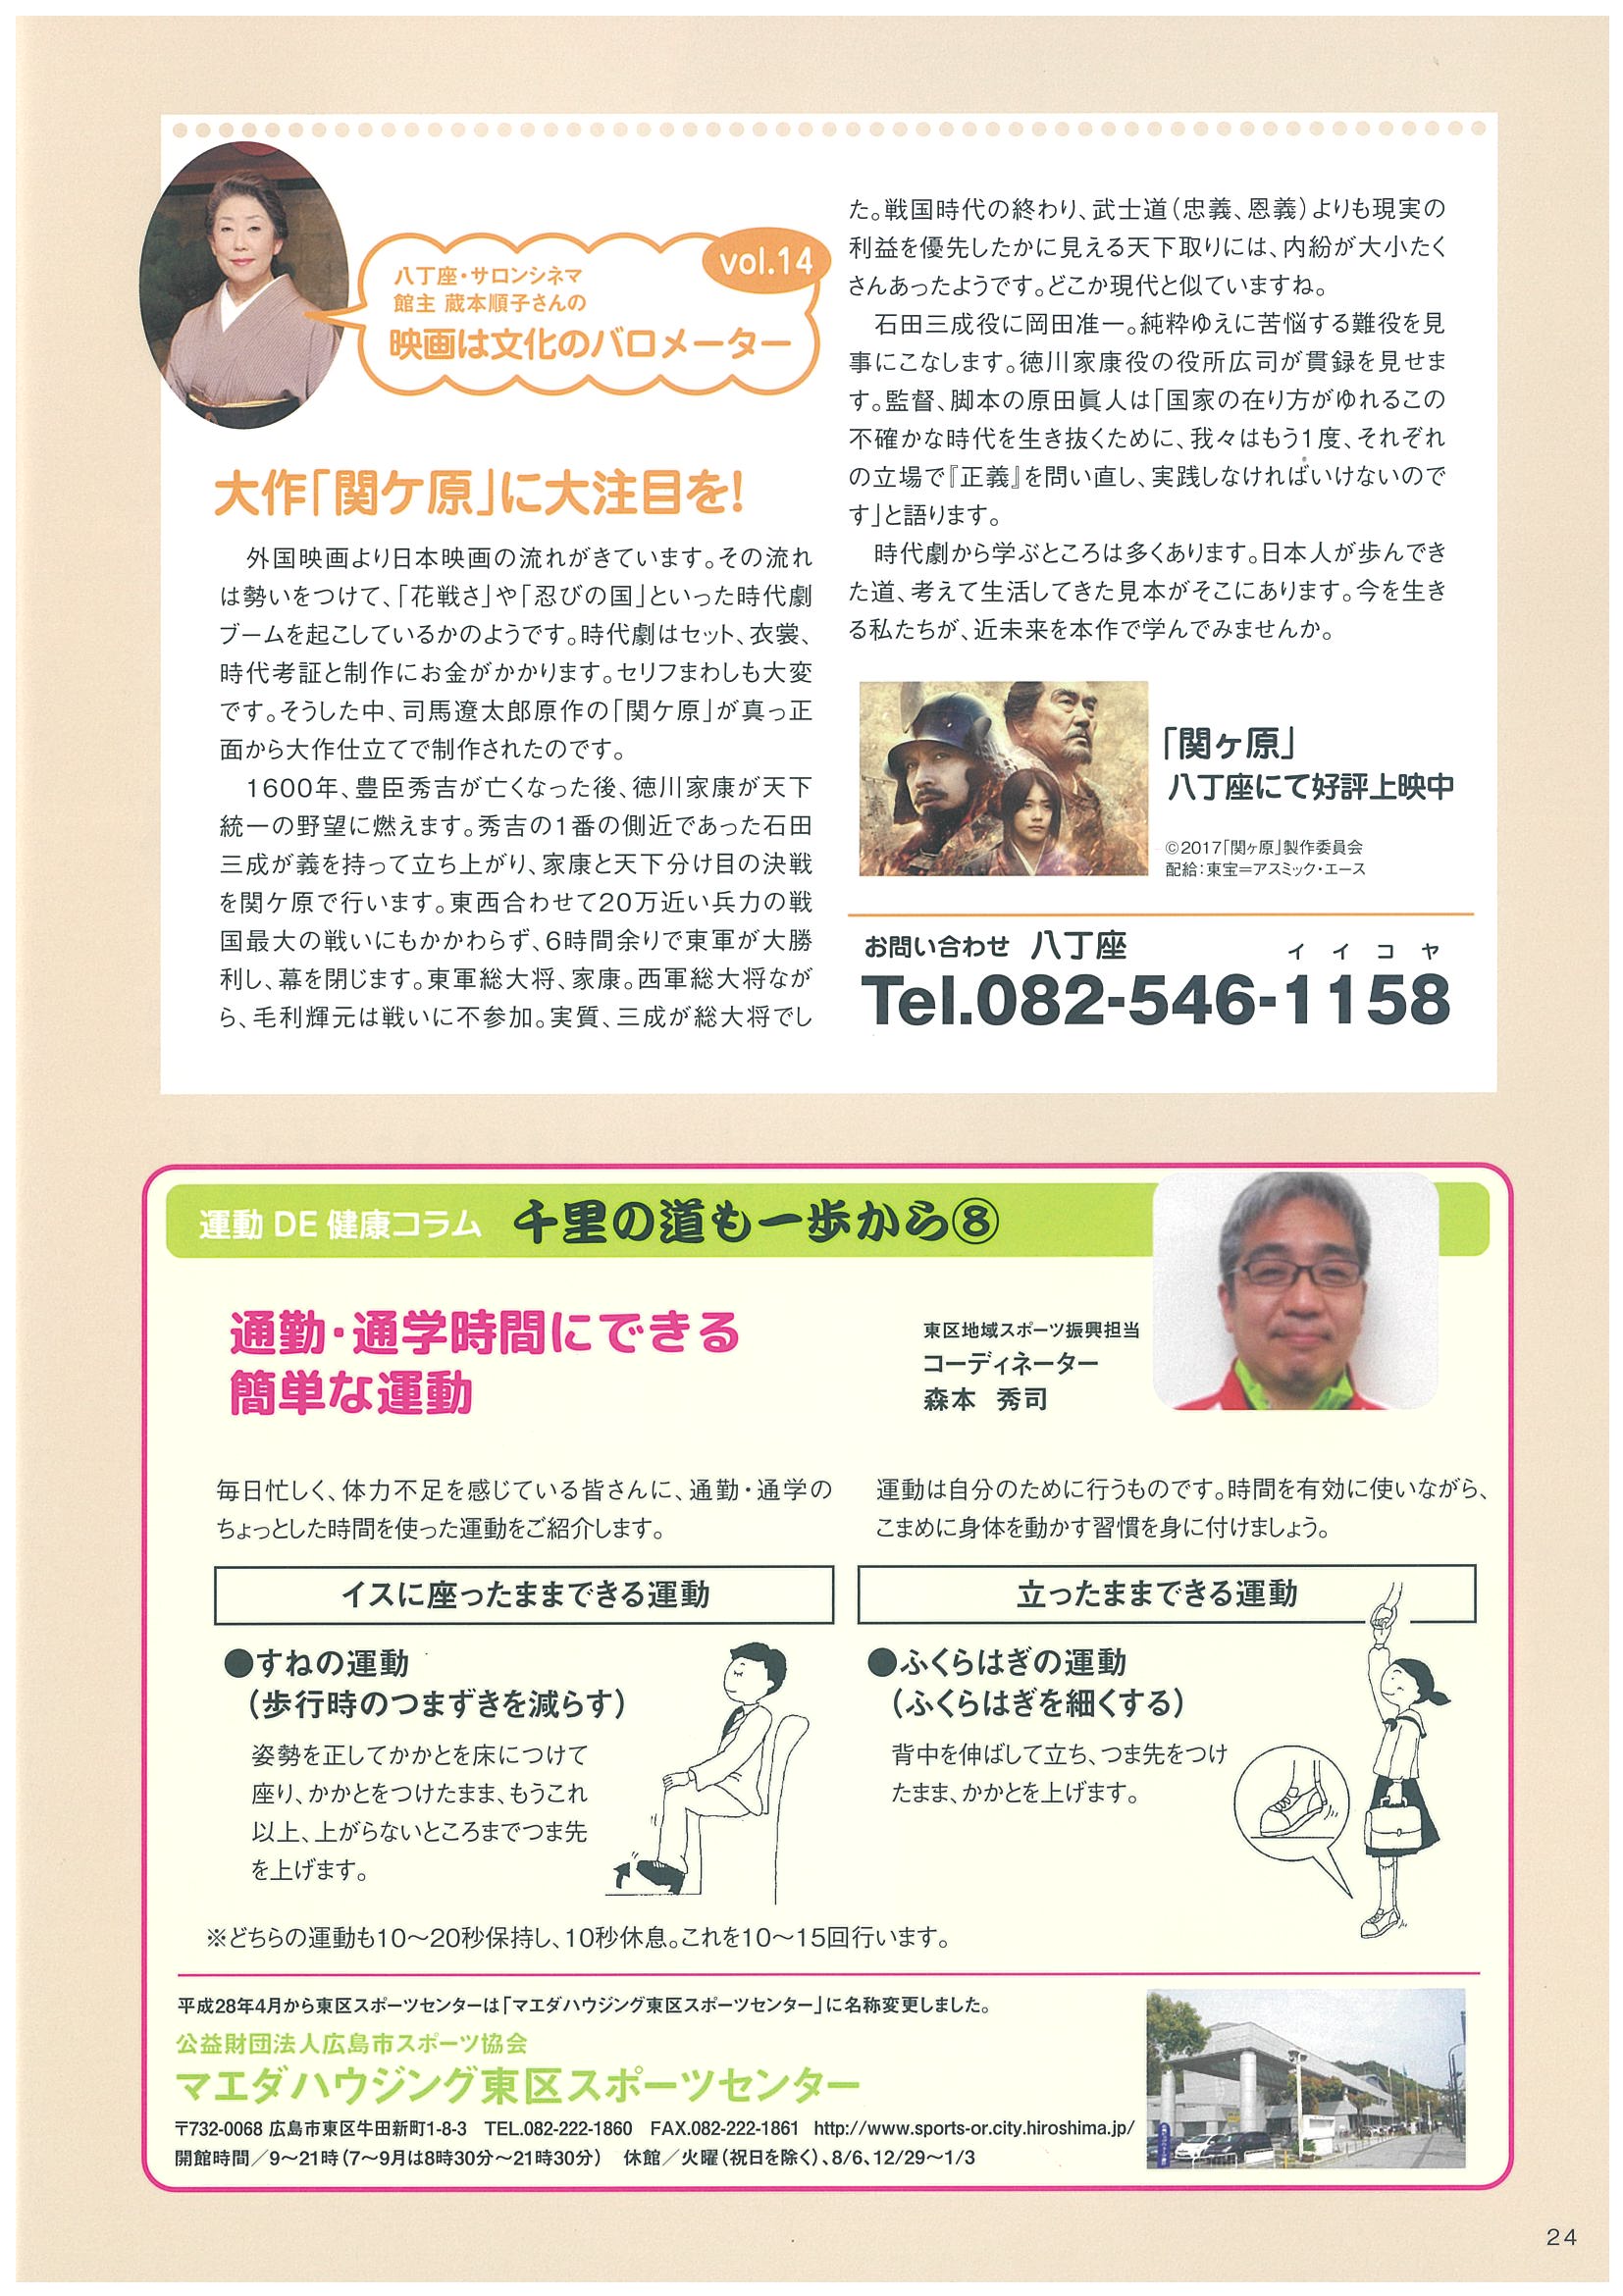 vol.14
八丁座・サロンシネマ
館主 蔵本順子さんの
映画は文化のバロメーター
大作「関ケ原」に大注目を!
外国映画より日本映画の流れがきています。その流れ
は勢いをつけて、「花戦さ」や「忍びの国」といった時代劇
ブームを起こしているかのようです。時代劇はセット、衣裳、
時代考証と制作にお金がかかります。セリフまわしも大変
です。そうした中、司馬遼太郎原作の「関ケ原」が真っ正
面から大作仕立てで制作されたのです。
1600年、豊臣秀吉が亡くなった後、徳川家康が天下
統一の野望に燃えます。秀吉の1番の側近であった石田
三成が義を持って立ち上がり、家康と天下分け目の決戦
を関ケ原で行います。東西合わせて20万近い兵力の戦
国最大の戦いにもかかわらず、6時間余りで東軍が大勝
利し、幕を閉じます。東軍総大将、家康。西軍総大将なが
ら、毛利輝元は戦いに不参加。実質、三成が総大将でし
た。戦国時代の終わり、武士道(忠義、恩義)よりも現実の
利益を優先したかに見える天下取りには、内紛が大小たく
さんあったようです。どこか現代と似ていますね。
石田三成役に岡田准一。純粋ゆえに苦悩する難役を見
事にこなします。徳川家康役の役所広司が貫録を見せま
す。監督、脚本の原田眞人は「国家の在り方がゆれるこの
不確かな時代を生き抜くために、我々はもう1度、それぞれ
の立場で『正義』を問い直し、実践しなければいけないので
す」と語ります。
時代劇から学ぶところは多くあります。日本人が歩んでき
た道、考えて生活してきた見本がそこにあります。今を生き
る私たちが、近未来を本作で学んでみませんか。
「関ヶ原」
八丁座にて好評上映中
©2017「関ヶ原」製作委員会
配給:東宝=アスミック・エース
お問い合わせ 八丁座 イイコヤ
Tel.082-546-1158
運動 DE 健康コラム 千里の道も一歩から⑧
通勤・通学時間にできる
簡単な運動
東区地域スポーツ振興担当
コーディネーター
森本 秀司
毎日忙しく、体力不足を感じている皆さんに、通勤・通学の
ちょっとした時間を使った運動をご紹介します。
運動は自分のために行うものです。時間を有効に使いながら、
こまめに身体を動かす習慣を身に付けましょう。
イスに座ったままできる運動
●すねの運動
(歩行時のつまずきを減らす)
姿勢を正してかかとを床につけて
座り、かかとをつけたまま、もうこれ
以上、上がらないところまでつま先
を上げます。
立ったままできる運動
●ふくらはぎの運動
(ふくらはぎを細くする)
背中を伸ばして立ち、つま先をつけ
たまま、かかとを上げます。
※どちらの運動も10〜20秒保持し、10秒休息。これを10〜15回行います。
平成28年4月から東区スポーツセンターは「マエダハウジング東区スポーツセンター」に名称変更しました。
公益財団法人広島市スポーツ協会
マエダハウジング東区スポーツセンター
〒732-0068 広島市東区牛田新町1-8-3 TEL.082-222-1860 FAX.082-222-1861 http://www.sports-or.city.hiroshima.jp/
開館時間/9〜21時(7〜9月は8時30分〜21時30分) 休館/火曜(祝日を除く)、8/6、12/29〜1/3
24